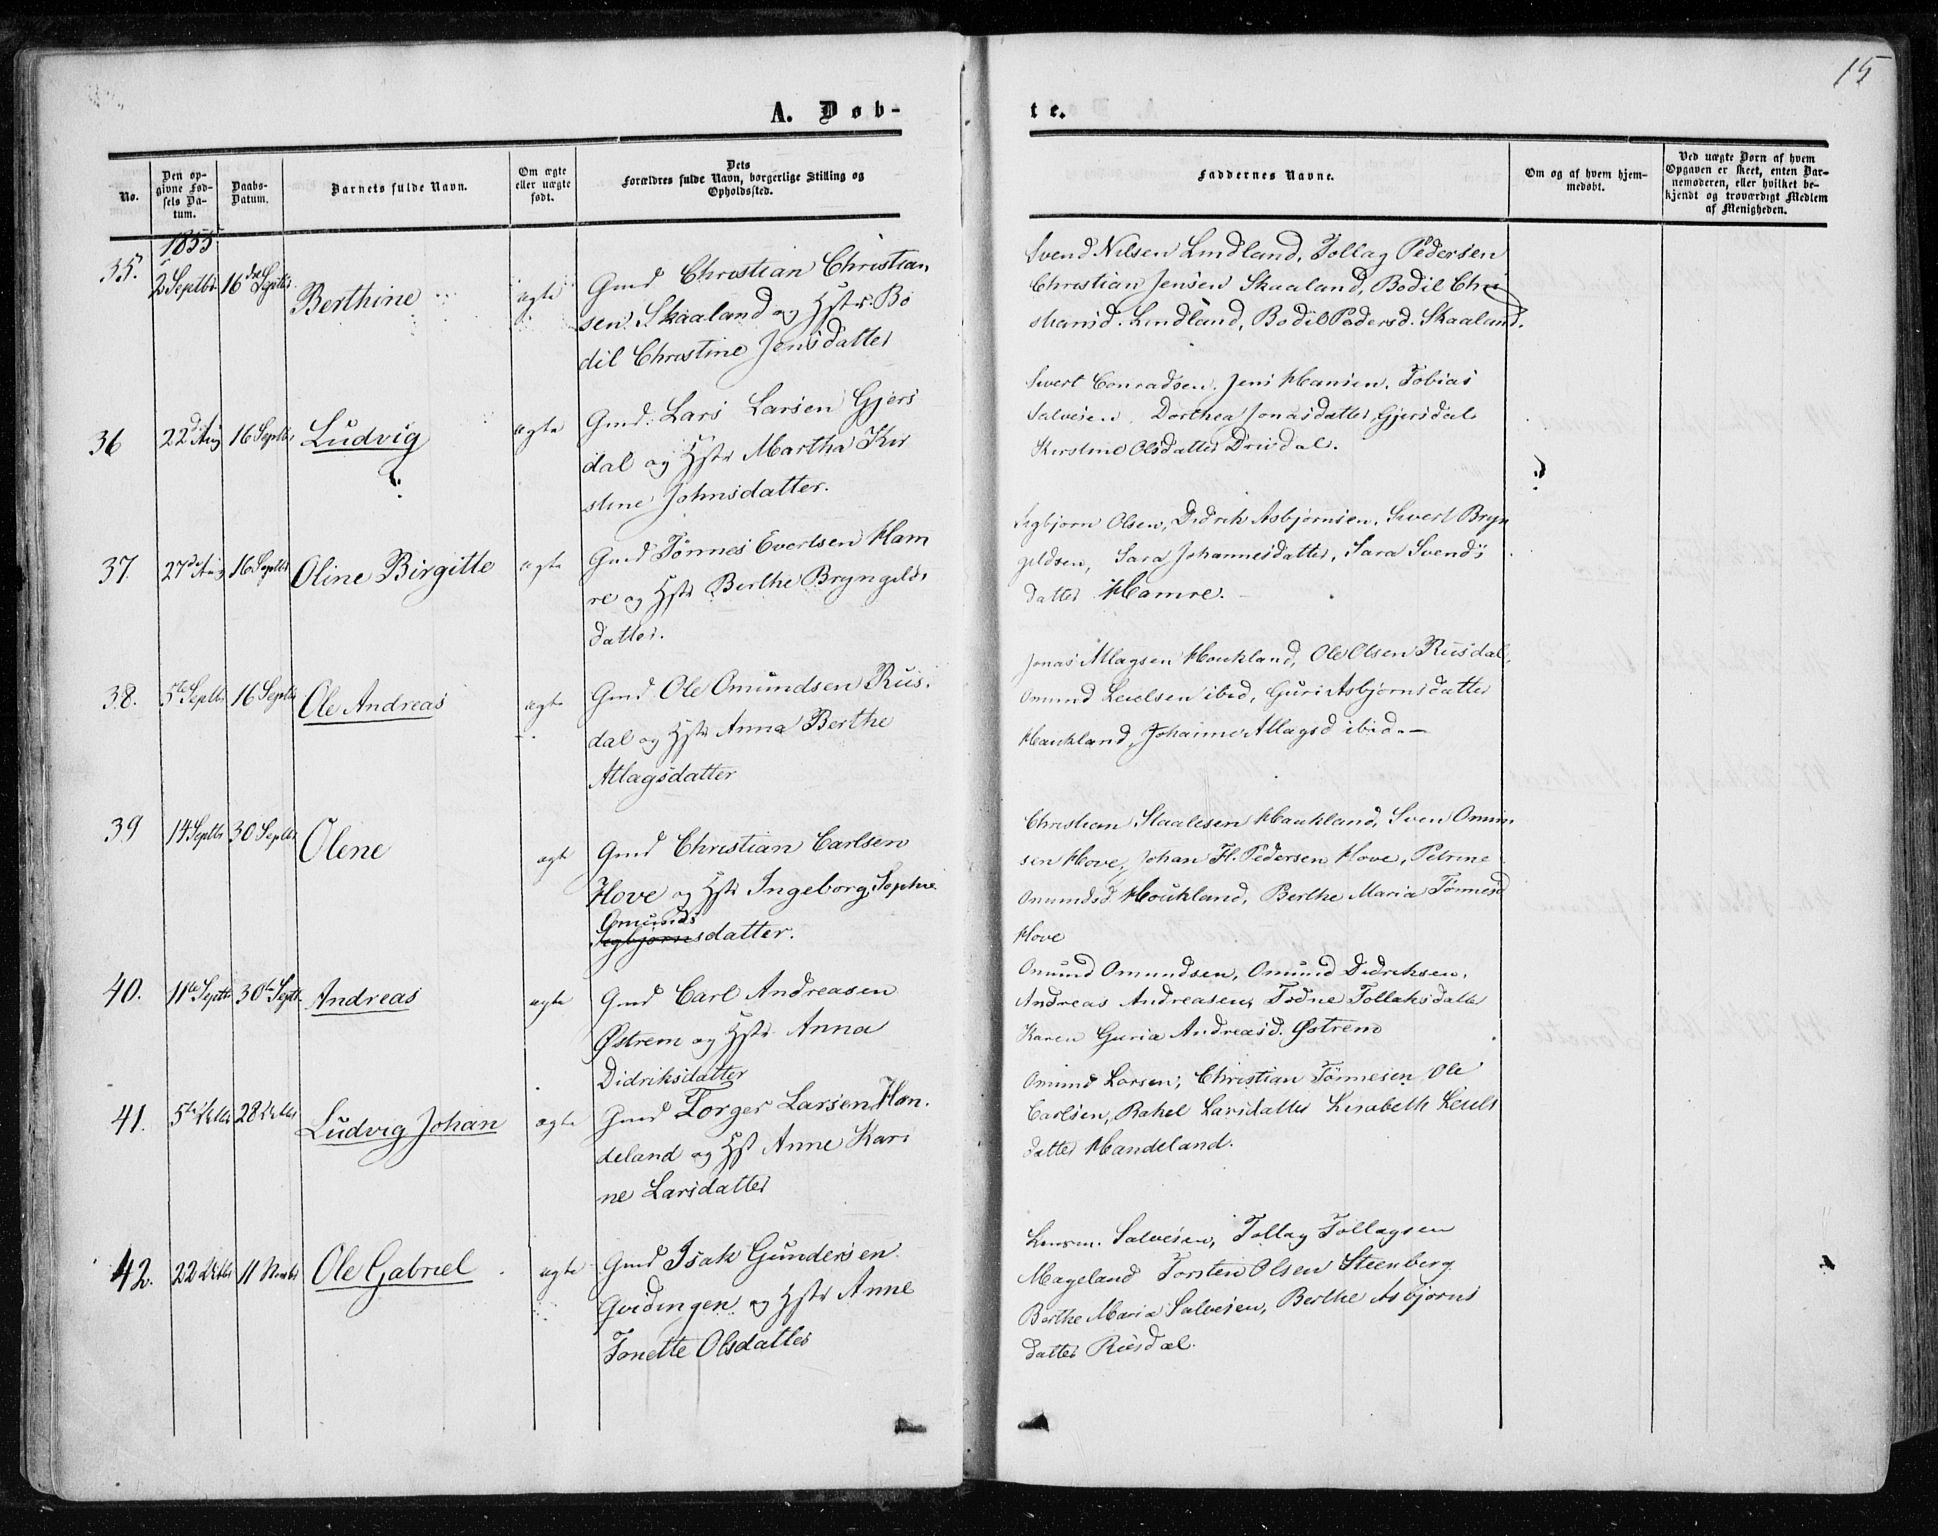 15
A. Døb-
te.
No.
Den op-
givne Fød-
sels Da-
tum.
Daabs-
Datum.
Barnets fulde Navn.
Om ægte
eller uægte
født.
Dets
Forældres fulde Navn, borgerlige Stilling og
Opholdssted.
Faddernes Navne.
Om og af hvem hjem-
medøbt.
Ved uægte Børn af hvem
Opgaven er skeet, enten Bar-
nemoderen, eller hvilket be-
kjendt og troværdigt Medlem
af Menigheden.
1855
35. 2 Septbr 16de Septbr Berthine ægte
Gmd Christian Christian
sen Skaaland og Hstr. Bo
dil Christine Jensdatter
Svend Nilsen Lindland, Tollag Pedersen
Christian Jensen Skaaland, Bodil Chri
stiansd. Lindland, Bodil Pedersd. Skaaland.
36 22d Aug 16 Septbr Ludvig ægte
Gmd. Lars Larsen Gjers
dal og Hstr Martha Kir
stine Johnsdatter.
Sivert Conradsen, Jens Hansen, Tobias
Salvesen, Dorthea Jonasdatter Gjersdal
Kirstine Olsdatter Drivdal.
37. 27de Aug 16 Septbr Oline Birgitte ægte
Gmd Tønnes Evertsen Ham
re og Hstr Berthe Bryngelds
datter.
Segbjørn Olsen, Didrik Asbjørnsen, Sivert Bryn
geldsen, Sara Johannesdatter, Sara Svends
datter Hamre.
38. 5te Septbr 16 Septbr Ole Andreas ægte
Gmd. Ole Omundsen Rus
dal og Hstr Anna Berthe
Atlagsdatter
Jonas Atlagsen Houkland, Ole Olsen Rusdal,
Omund Leielsen ibid, Guri Asbjørnsdatter
Haukland, Johanne Atlagsd ibid.
39 14 Septbr 30 Septbr Olene ægte
Gmd Christian Carlsen
Hove og Hstr Ingeborg Sophie
Omunds
Segbjørnsdatter.
Christian Staalesen Haukland, Sven Omun
sen Hove, Johan H. Pedersen Hove, Petrine
Omundsd Houkland, Berthe Maria Tønnesd
Hove
40. 11te Septbr 30te Septbr Andreas ægte
Gmd Carl Andreasen
Østrem og Hstr Anna
Didriksdatter
Omund Omundsen, Omund Didriksen,
Andreas Andreasen, Todne Tollaksdatter
Karen Guria Andreasd. Østrem
41. 5te Octbr 28 Octbr Ludvig Johan ægte
Gmd Torger Larsen Han
deland og Hst Anne Kari
ne Larsdatter
Omund Larsen, Christian Tønnesen, Ole
Carlsen, Rakel Larsdatter Lisabeth Leiels
datter Handeland.
42. 22 Octbr 11 Novbr Ole Gabriel ægte
Gmd Isak Gundersen
Gvedingen og Hstr Anne
Tonette Olsdatter
Salvesen, Tollag Tollagsen
Mageland Torsten Olsen Steenberg
Berthe Maria Salvesen, Berthe Asbjørns
datter Rusdal.